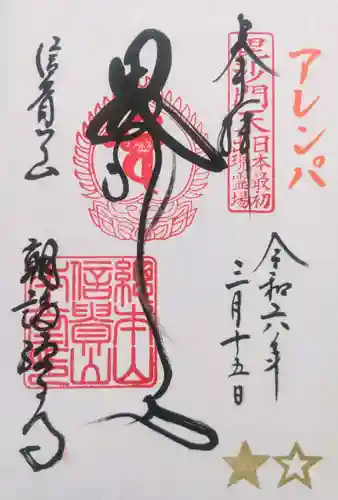 アレンパ
奉拝
毘沙門天
日本最初
出現霊場
令和六年
三月十五日
總本山
信貴山
信貴山
朝護孫子寺